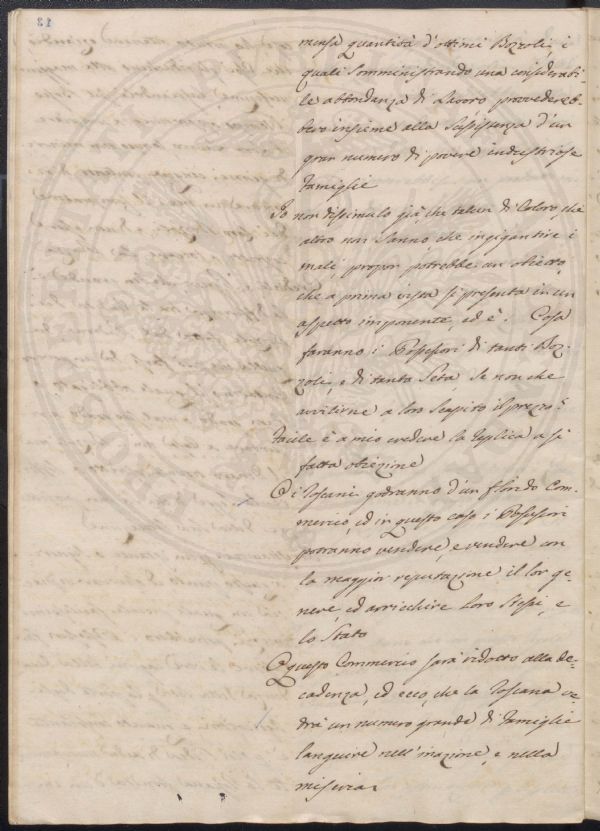 mensa quantità d'ottimi Bozzoli, i
quali somministrando una considerabi-
le abbondanza di Lavoro provvedereb-
bero insieme alla Sussistenza d'un
gran numero di povere industriose
famiglie
Io non dissimulo già, che taluni di Coloro, che
altro non Sanno, che ingigantire i
mali, propor potrebbe un obietto,
che a prima vista si presenta in un
aspetto imponente, ed è. Cosa
faranno i Possessori di tanti Boz-
zoli, e di tanta Seta, se non che
avvilirne a loro Scapito il prezzo?
Facile è a mio credere la replica a sì
fatta obiezione
O i Toscani godranno d'un florido Com-
mercio, ed in questo caso i Possessori
potranno vendere, e vendere con
la maggior reputazione il lor ge-
nere, ed arricchire Loro Stessi, e
lo Stato
O questo Commercio sarà ridotto alla de-
cadenza, ed ecco, che la Toscana ve-
drà un numero grande di famiglie
languire nell'inazione, e nella
miseria